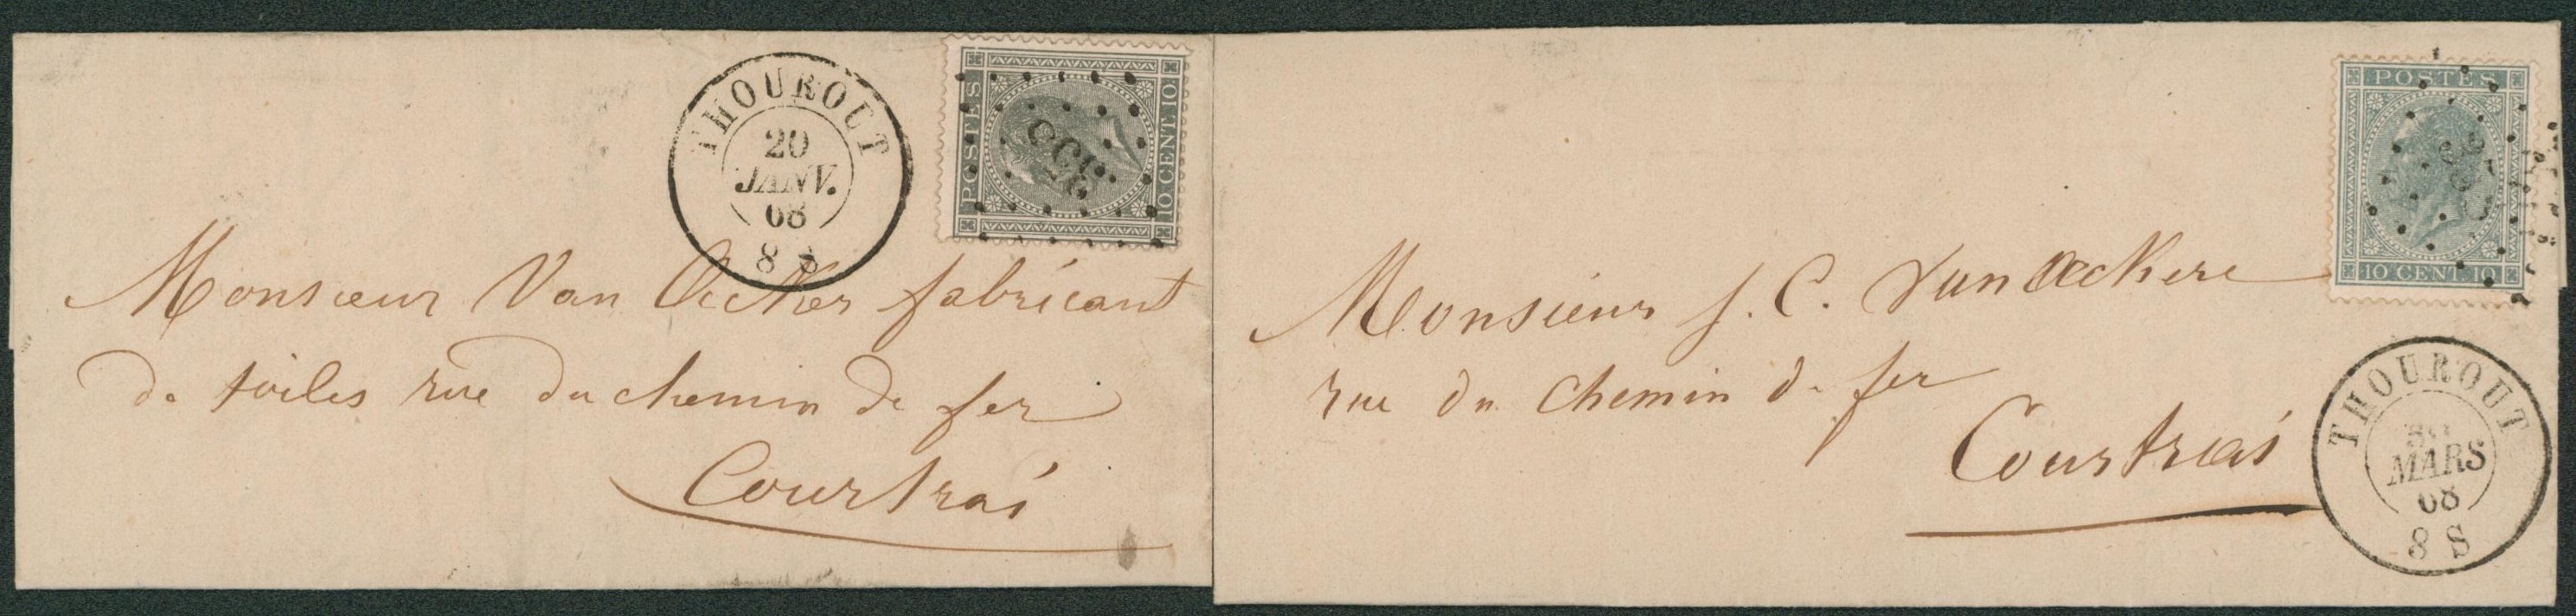 THOUROUT
20
JANV.
68
8 S
POSTES
10 CENT. 10
Monsieur Van Acker fabricant
de toiles rue du chemin de fer
Courtrai
POSTES
10 CENT. 10
Monsieur J. C. Van Ackere
rue du Chemin de fer
Courtrai
THOUROUT
MARS
68
8 S